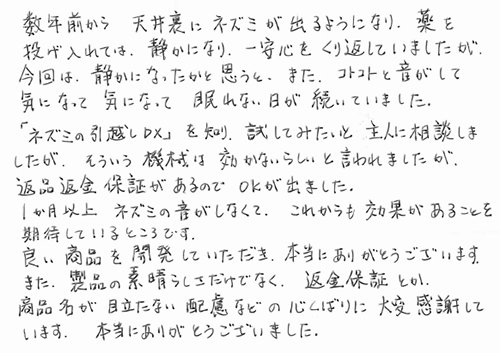 数年前から 天井裏にネズミが出るようになり、薬を
投げ入れては、静かになり、一安心をくり返していましたが、
今回は、静かになったかと思うと、また、コトコトと音がして
気になって 気になって 眠れない日が 続いていました。
「ネズミの引越しDX」を知り、試してみたいと 主人に相談しま
したが、そういう 機械は 効かないらしいと言われましたが、
返品返金保証があるので OKが出ました。
1か月以上 ネズミの音がしなくて、これからも 効果があることを
期待しているところです。
良い商品を開発していただき、本当にありがとうございます。
また、製品の素晴らしさだけでなく、返金保証とか、
商品名が目立たない配慮などの心くばりに大変感謝して
います。 本当にありがとうございました。